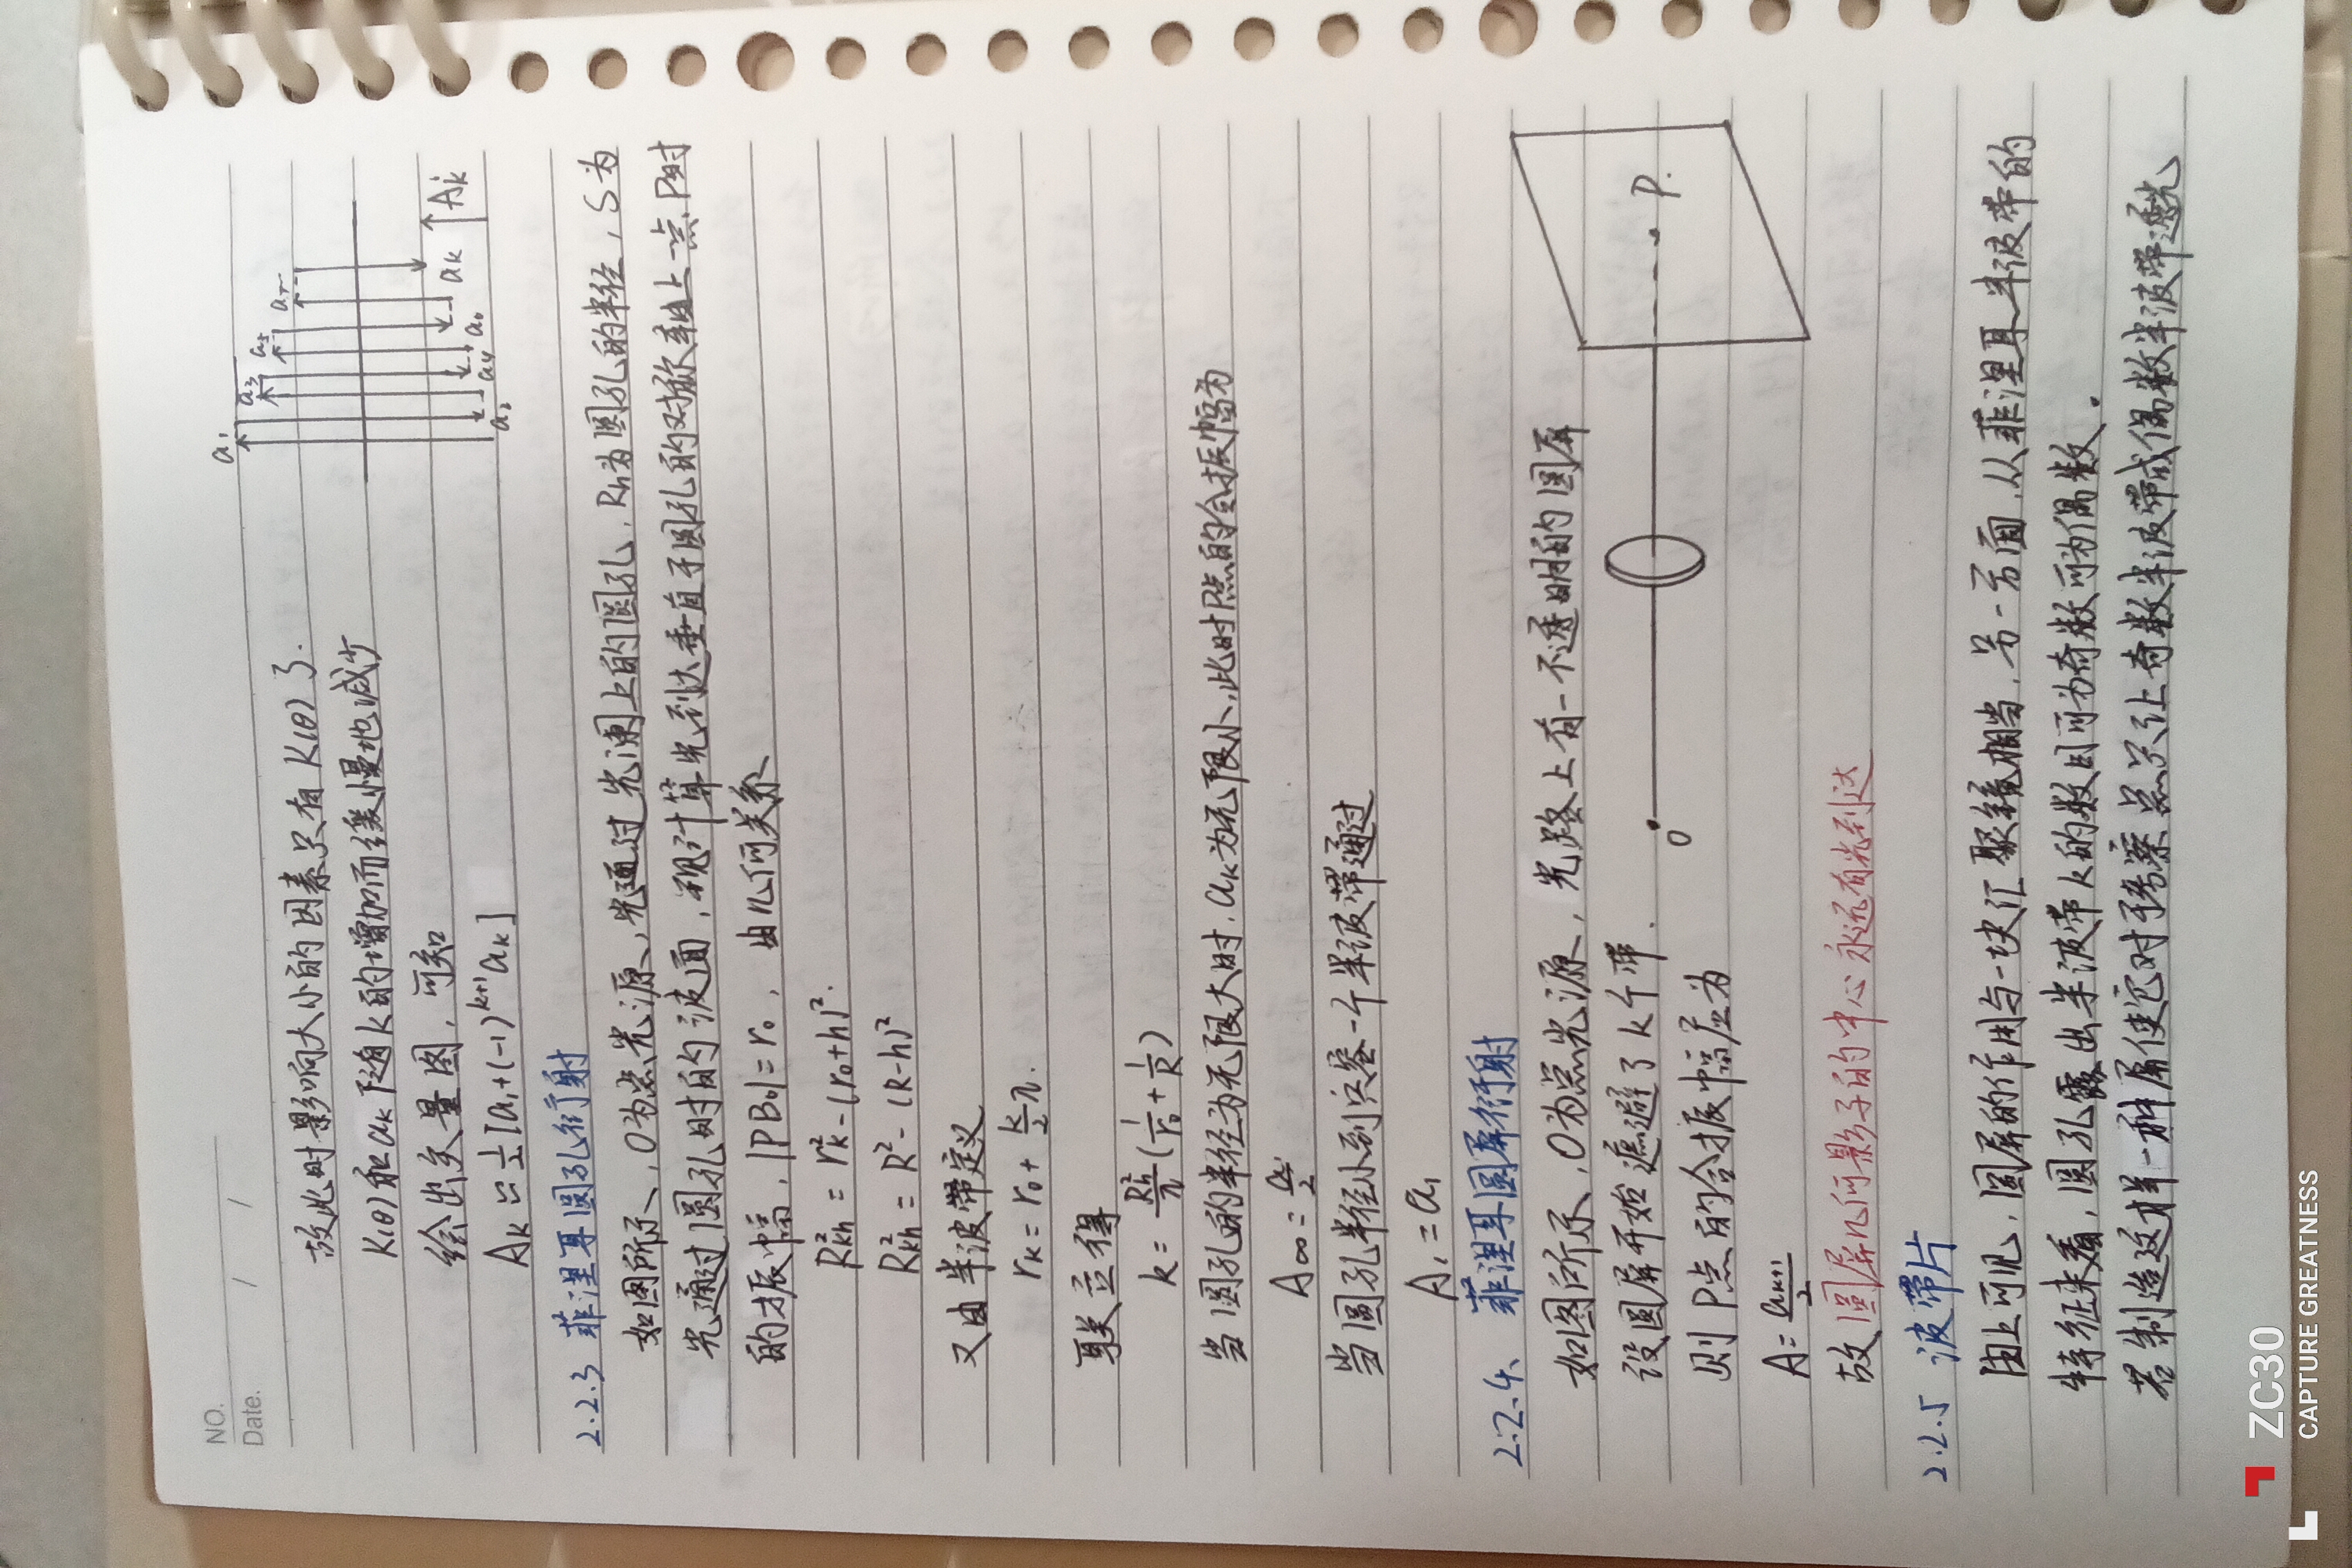 NO.
Date. / /
故此时影响大小的因素只有K(θ)了.
K(θ)和aₖ随k的增加而缓慢地减少
绘出矢量图,可知
Aₖ ≌ ½[a₁+(-1)ᵏ⁺¹aₖ]
a₁ a₃ a₅ a₇
a₂ a₄ a₆ aₖ Aₖ
2.2.3 菲涅耳圆孔衍射
如图所示,O为点光源,光通过光阑上的圆孔,Rₕ为圆孔的半径,S为
光通过圆孔时的波面,现计算光到达垂直于圆孔的对称轴上一点P时
的振幅,|PB₀|=r₀,由几何关系
Rₖₕ² = rₖ²-(r₀+h)².
Rₖₕ² = R²-(R-h)²
又由半波带定义
rₖ = r₀+ k/2 λ.
联立得
k = Rₕ²/λ (1/r₀ + 1/R)
当圆孔的半径为无限大时,aₖ为无限小,此时P点的合振幅为
A∞ = a₁/2
当圆孔半径小到只容一个半波带通过
A₁ = a₁
2.2.4. 菲涅耳圆屏衍射
如图所示,O为点光源,光路上有一不透明的圆屏
设圆屏开始遮避了k个带.
则P点的合振幅应为
A = aₖ₊₁/2
O
P.
故圆屏几何影子的中心永远有光到达
2.2.5 波带片
由上可见,圆屏的作用与一块汇聚镜相当,另一方面,从菲涅耳半波带的
特征来看,圆孔露出半波带k的数目可为奇数可为偶数.
若制造这样一种屏使它对于考察点只让奇数半波带或偶数半波带透光
ZC30
CAPTURE GREATNESS